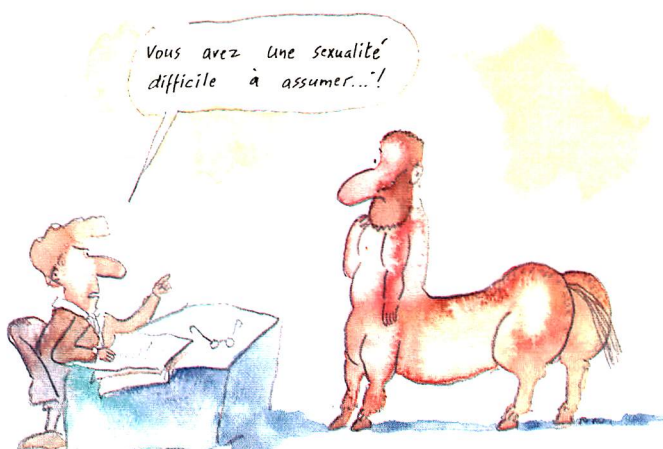 Vous avez une sexualité
difficile à assumer...!